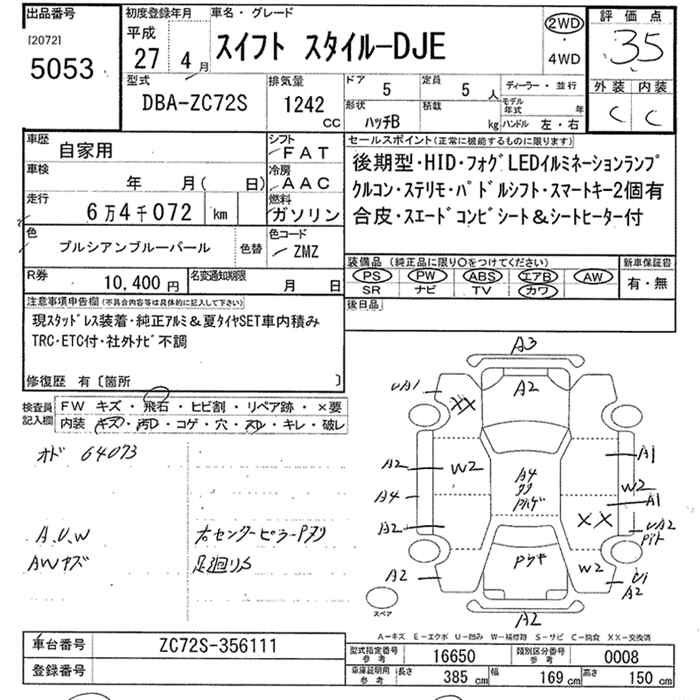 出品番号
[2072]
5053
初度登録年月
平成
27 4月
車名・グレード
スイフト スタイルーDJE
2WD
・
4WD
評価点
35
外装 内装
C C
型式
DBA-ZC72S
排気量
1242
CC
ドア
5
定員
5 人
形状
ハッチB
積載
kg
ディーラー・並行
モデル年式 年
ハンドル 左・右
車歴
自家用
シフト
FAT
車検
年 月( 日)
冷房
AAC
走行
6万4千072 km
燃料
ガソリン
色
プルシアンブルーパール
色替
色コード
ZMZ
R券
10,400 円
名変通知期限
月 日
セールスポイント(正常に機能するものに限ります)
後期型・HID・フォグLEDイルミネーションランプ
クルコン・ステリモ・パドルシフト・スマートキー2個有
合皮・スエードコンビシート&シートヒーター付
装備品 (純正品に限り○をつけてください)
PS PW ABS エアB AW
SR ナビ TV カワ
新車保証書
有・無
後日品
注意事項申告欄(不具合内容等は具体的に記入して下さい)
現スタッドレス装着・純正アルミ&夏タイヤSET車内積み
TRC・ETC付・社外ナビ不調
修復歴 有〔箇所 〕
検査員記入欄
FW キズ・飛石・ヒビ割・リペア跡・×要
内装 キズ・汚レ・コゲ・穴・スレ・キレ・破レ
オド 64073
A.U.W
AWキズ
右センターピラーPズリ
足廻りサ
A3
UA1
XX
A2
A2
W2
A4
A1
A4
W2
A1
A2
XX
UA2
A2
W2
A2
A2
スペア
A-キズ E-エクボ U-凹み W-補修跡 S-サビ C-腐食 XX-交換済
車台番号
ZC72S-356111
登録番号
型式指定番号 参考
16650
類別区分番号 参考
0008
車庫証明用 参考
長さ
385 cm
幅
169 cm
高さ
150 cm